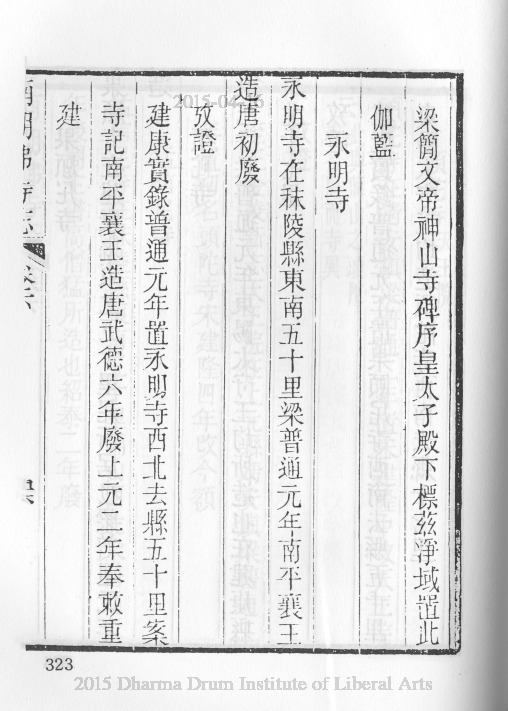 梁簡文帝神山寺碑序皇太子殿下標茲淨域置此
伽藍
永明寺
永明寺在秣陵縣東南五十里梁普通元年南平襄王
造唐初廢
攷證
建康實錄普通元年置永明寺西北去縣五十里案
寺記南平襄王造唐武德六年廢上元二年奉敕重
建
南朝佛寺志 卷六
323
2015-04-26
2015 Dharma Drum Institute of Liberal Arts